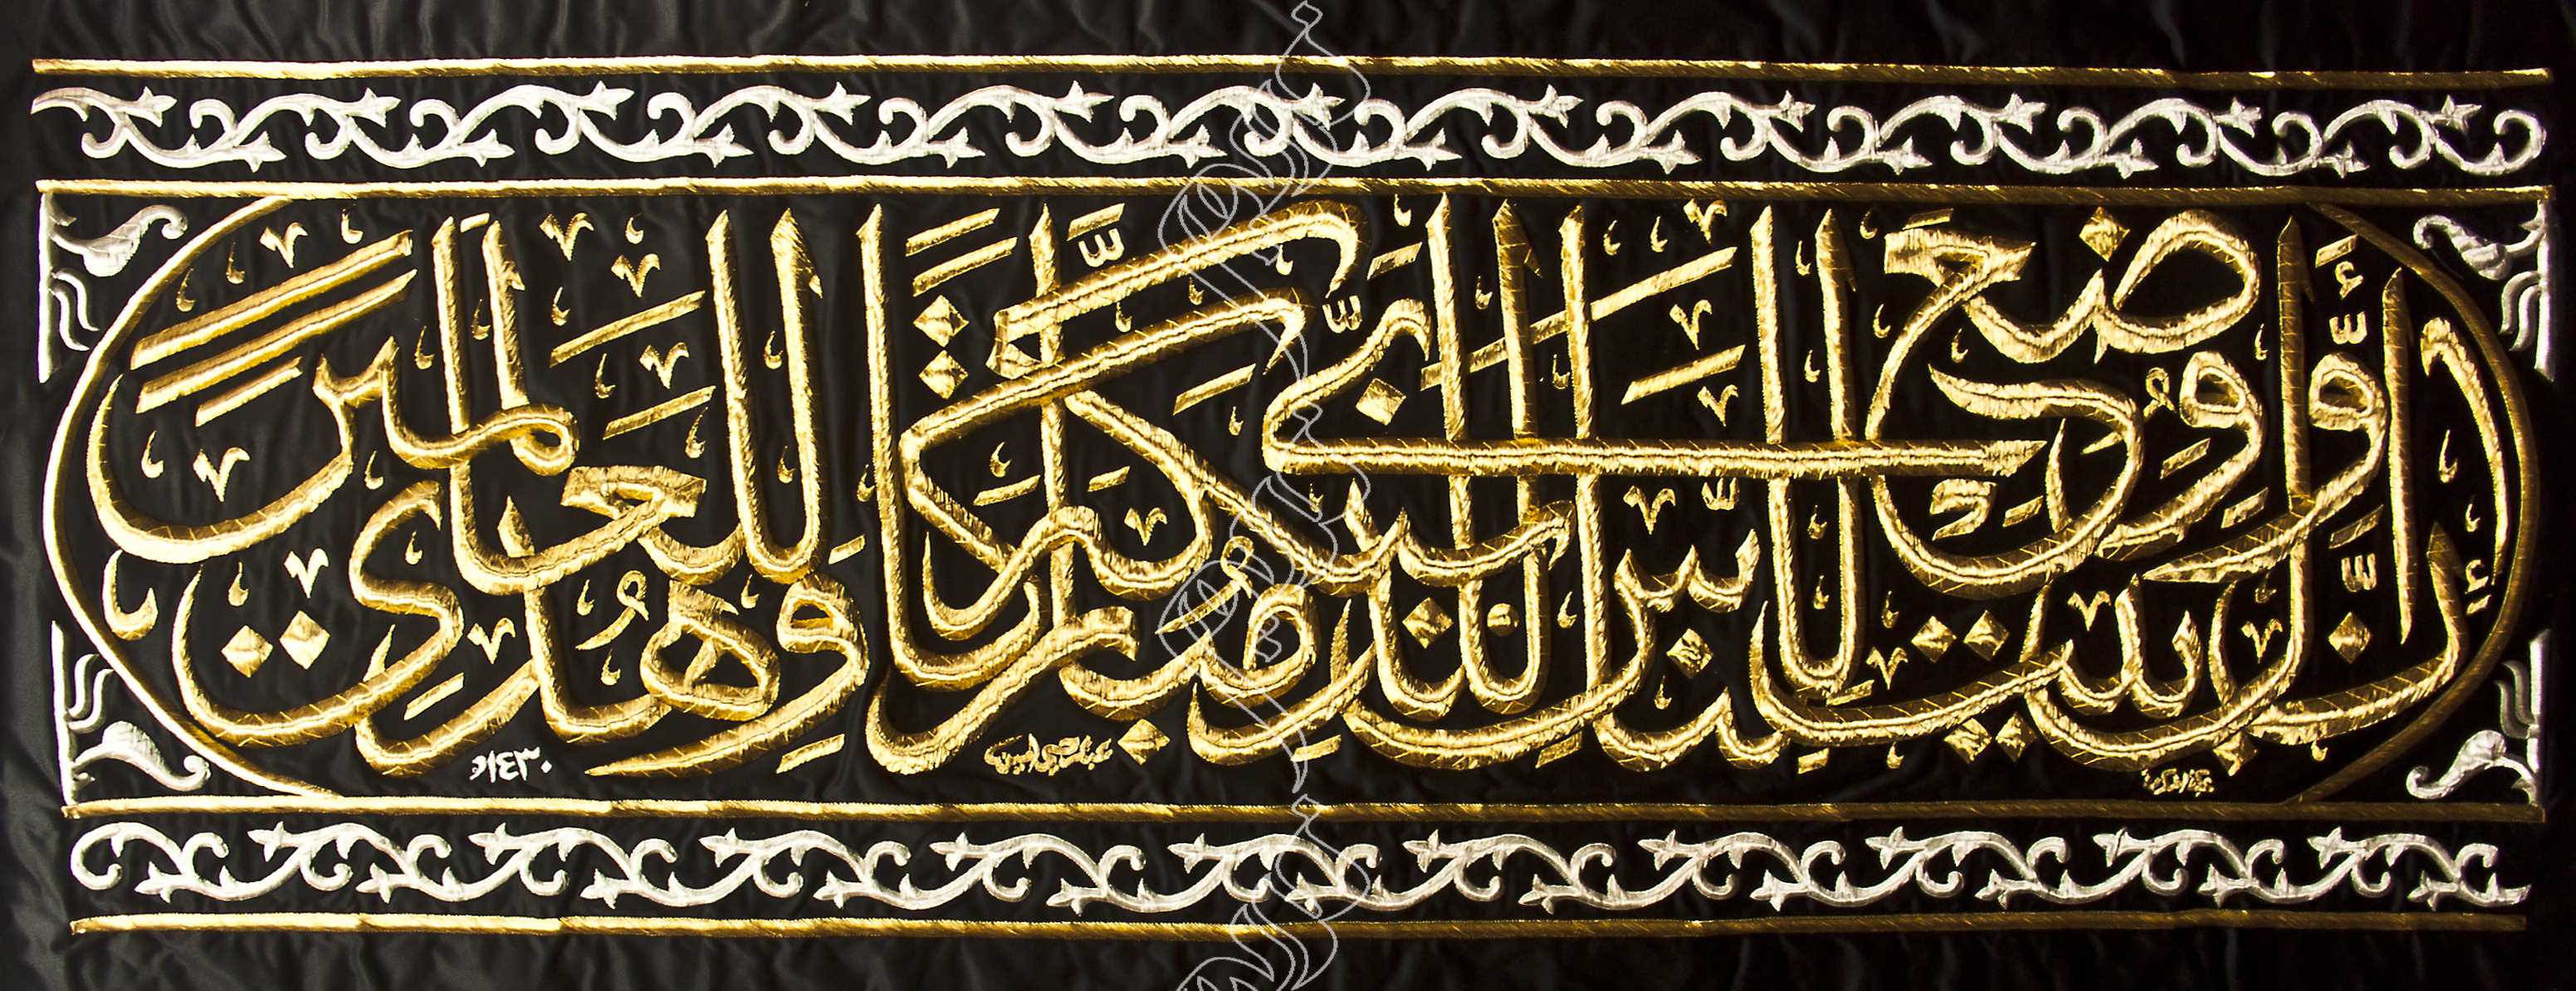 إِنَّ أَوَّلَ بَيْتٍ وُضِعَ لِلنَّاسِ لَلَّذِي بِبَكَّةَ مُبَارَكًا وَهُدًى لِلْعَالَمِينَ
١٤٣٠